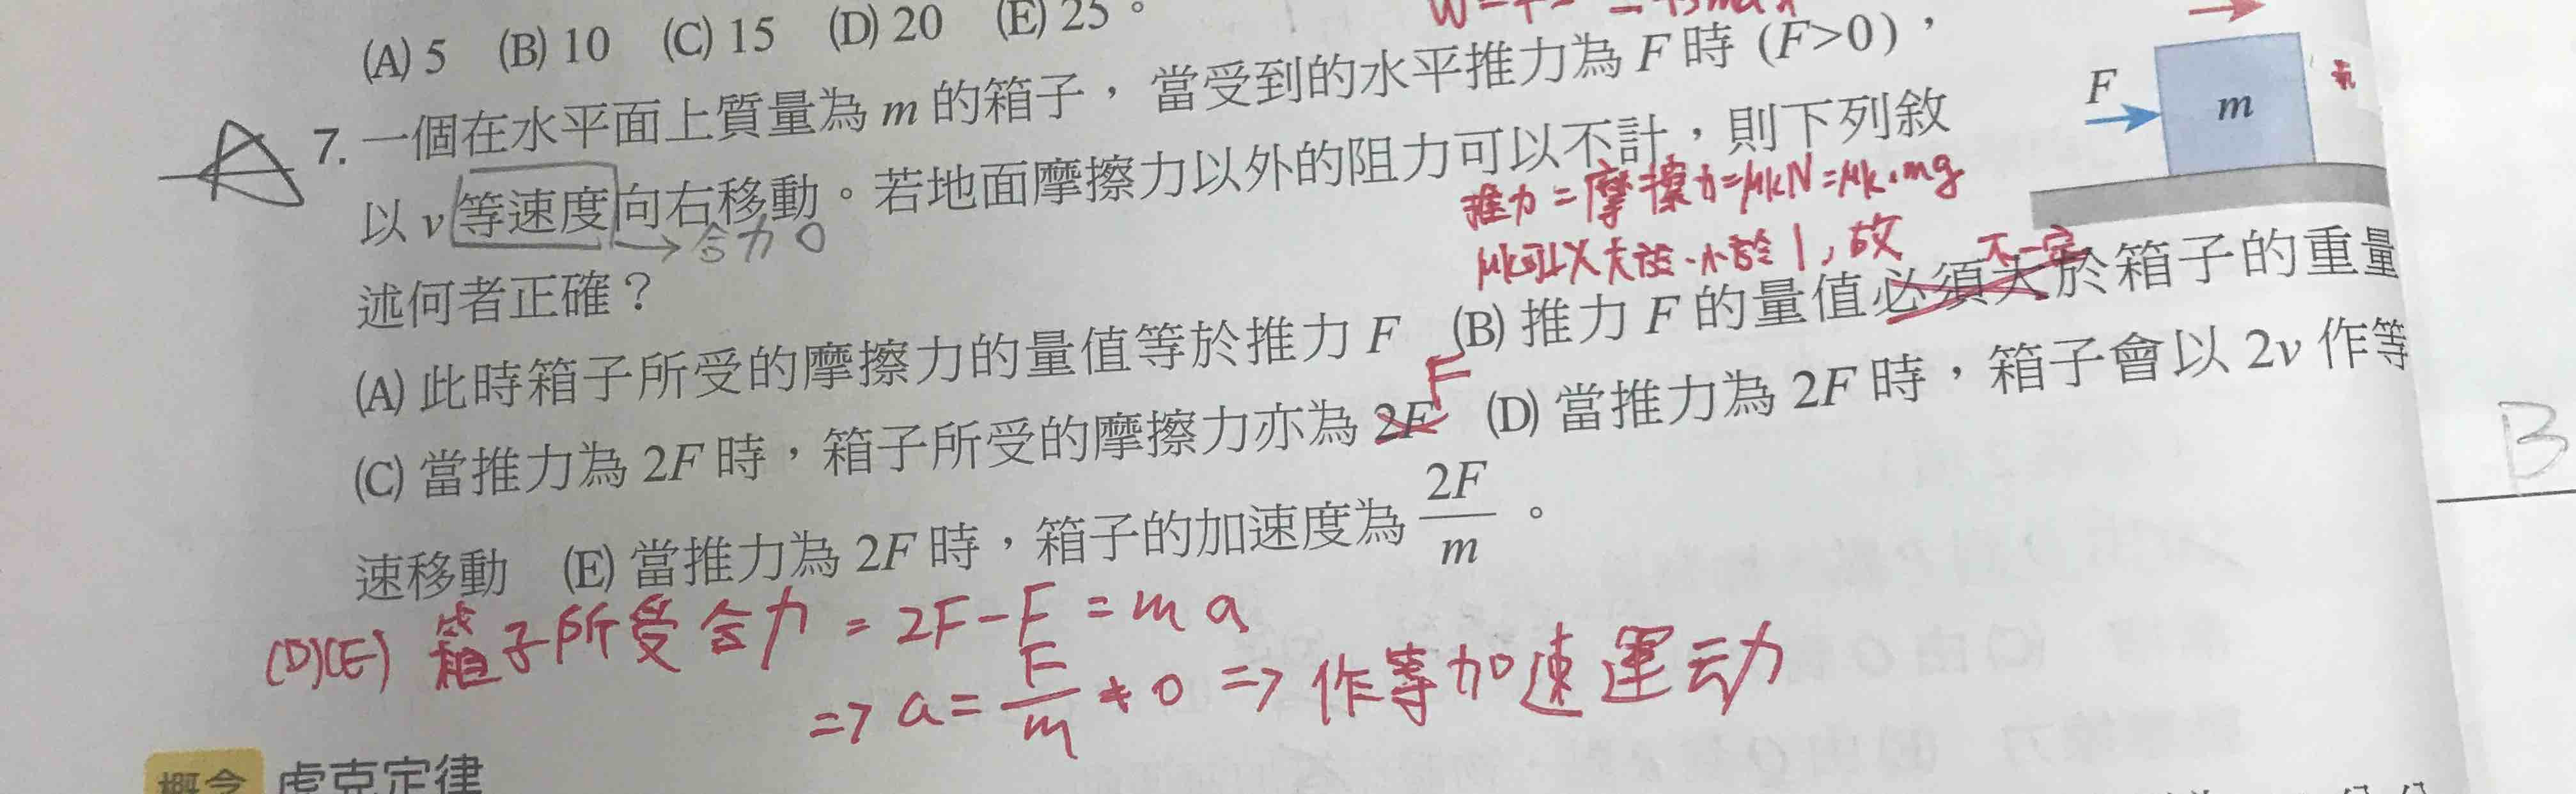 (A) 5 (B) 10 (C) 15 (D) 20 (E) 25。
A 7. 一個在水平面上質量為 m 的箱子,當受到的水平推力為 F 時 (F>0),
以 v 等速度向右移動。若地面摩擦力以外的阻力可以不計,則下列敘
→ 合力 0
推力 = 摩擦力 = μkN = μk·mg
F
m
述何者正確?
μk可以大於、小於 1,故
不一定
(A) 此時箱子所受的摩擦力的量值等於推力 F (B) 推力 F 的量值必須大於箱子的重量
F
(C) 當推力為 2F 時,箱子所受的摩擦力亦為 2F (D) 當推力為 2F 時,箱子會以 2v 作等
速移動 (E) 當推力為 2F 時,箱子的加速度為 2F/m。
B
(D)(E) 箱子所受合力 = 2F-F = ma
=> a = F/m ≠ 0 => 作等加速運动
概念 虎克定律